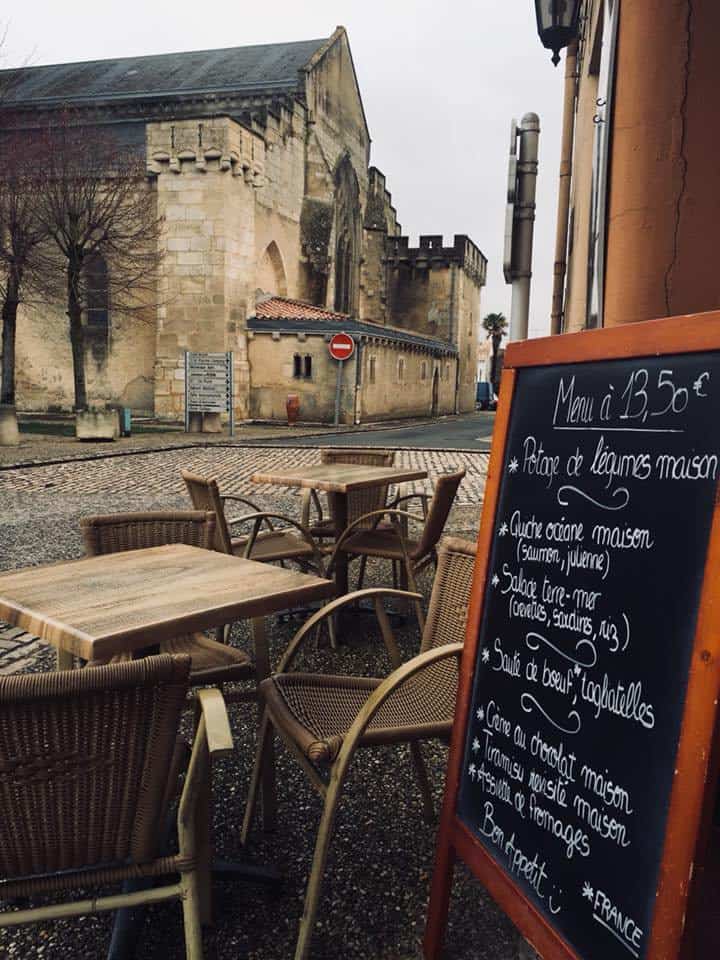 Menu à 13,50€
* Potage de légumes maison
* Quiche océane maison
(saumon, julienne)
* Salade terre-mer
(crevettes, sardines, riz)
* Sauté de boeuf, tagliatelles
* Crème au chocolat maison
* Tiramisu revisité maison
* Assiette de fromages
Bon Appetit
* FRANCE